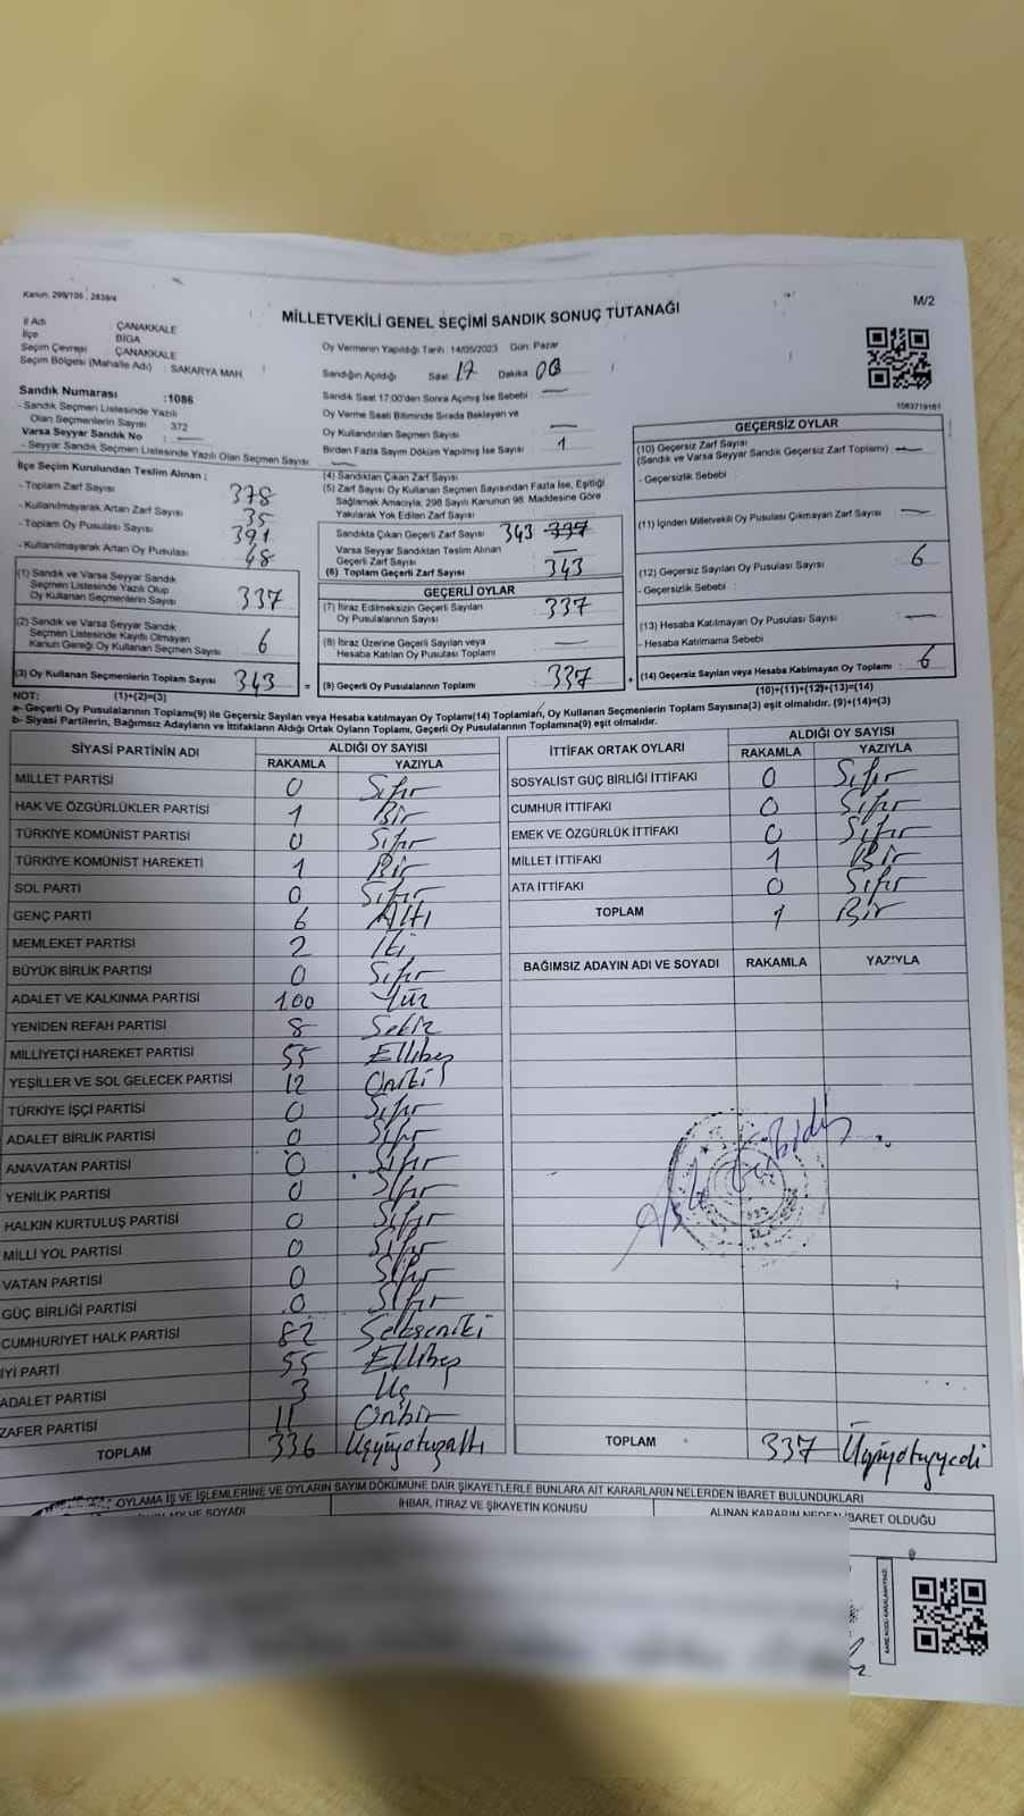 Kanun: 299/106 , 2839/4
M/2
MİLLETVEKİLİ GENEL SEÇİMİ SANDIK SONUÇ TUTANAĞI
İl Adı ÇANAKKALE
İlçe BİGA
Seçim Çevresi ÇANAKKALE
Seçim Bölgesi (Mahalle Adı) SAKARYA MAH.
Oy Vermenin Yapıldığı Tarih: 14/05/2023 Gün: Pazar
Sandığın Açıldığı Saat 17 Dakika 08
Sandık Saat 17:00'den Sonra Açılmış İse Sebebi —
Oy Verme Saati Bitiminde Sırada Bekleyen ve
Oy Kullandırılan Seçmen Sayısı —
Birden Fazla Sayım Döküm Yapılmış İse Sayısı 1
Sandık Numarası :1086
- Sandık Seçmen Listesinde Yazılı
Olan Seçmenlerin Sayısı 372
Varsa Seyyar Sandık No : —
- Seyyar Sandık Seçmen Listesinde Yazılı Olan Seçmen Sayısı —
İlçe Seçim Kurulundan Teslim Alınan :
- Toplam Zarf Sayısı 378
- Kullanılmayarak Artan Zarf Sayısı 35
- Toplam Oy Pusulası Sayısı 391
- Kullanılmayarak Artan Oy Pusulası 48
(1) Sandık ve Varsa Seyyar Sandık
Seçmen Listesinde Yazılı Olup
Oy Kullanan Seçmenlerin Sayısı 337
(2) Sandık ve Varsa Seyyar Sandık
Seçmen Listesinde Kayıtlı Olmayan
Kanun Gereği Oy Kullanan Seçmen Sayısı 6
(3) Oy Kullanan Seçmenlerin Toplam Sayısı 343
(1)+(2)=(3)
(4) Sandıktan Çıkan Zarf Sayısı
(5) Zarf Sayısı Oy Kullanan Seçmen Sayısından Fazla İse, Eşitliği
Sağlamak Amacıyla, 298 Sayılı Kanunun 98. Maddesine Göre
Yakılarak Yok Edilen Zarf Sayısı
Sandıkta Çıkan Geçerli Zarf Sayısı 343 337
Varsa Seyyar Sandıktan Teslim Alınan
Geçerli Zarf Sayısı —
(6) Toplam Geçerli Zarf Sayısı 343
GEÇERLİ OYLAR
(7) İtiraz Edilmeksizin Geçerli Sayılan
Oy Pusulalarının Sayısı 337
(8) İtiraz Üzerine Geçerli Sayılan veya
Hesaba Katılan Oy Pusulası Toplamı —
= (9) Geçerli Oy Pusulalarının Toplamı 337 +
1083719161
GEÇERSİZ OYLAR
(10) Geçersiz Zarf Sayısı
(Sandık ve Varsa Seyyar Sandık Geçersiz Zarf Toplamı) —
- Geçersizlik Sebebi :
(11) İçinden Milletvekili Oy Pusulası Çıkmayan Zarf Sayısı —
(12) Geçersiz Sayılan Oy Pusulası Sayısı : 6
- Geçersizlik Sebebi :
(13) Hesaba Katılmayan Oy Pusulası Sayısı —
- Hesaba Katılmama Sebebi
(14) Geçersiz Sayılan veya Hesaba Katılmayan Oy Toplamı : 6
(10)+(11)+(12)+(13)=(14)
NOT:
a- Geçerli Oy Pusulalarının Toplamı(9) ile Geçersiz Sayılan veya Hesaba katılmayan Oy Toplamı(14) Toplamları, Oy Kullanan Seçmenlerin Toplam Sayısına(3) eşit olmalıdır. (9)+(14)=(3)
b- Siyasi Partilerin, Bağımsız Adayların ve İttifakların Aldığı Ortak Oyların Toplamı, Geçerli Oy Pusulalarının Toplamına(9) eşit olmalıdır.
SİYASİ PARTİNİN ADI ALDIĞI OY SAYISI
RAKAMLA YAZIYLA
MİLLET PARTİSİ 0 Sıfır
HAK VE ÖZGÜRLÜKLER PARTİSİ 1 Bir
TÜRKİYE KOMÜNİST PARTİSİ 0 Sıfır
TÜRKİYE KOMÜNİST HAREKETİ 1 Bir
SOL PARTİ 0 Sıfır
GENÇ PARTİ 6 Altı
MEMLEKET PARTİSİ 2 İki
BÜYÜK BİRLİK PARTİSİ 0 Sıfır
ADALET VE KALKINMA PARTİSİ 100 Yüz
YENİDEN REFAH PARTİSİ 8 Sekiz
MİLLİYETÇİ HAREKET PARTİSİ 55 Ellibeş
YEŞİLLER VE SOL GELECEK PARTİSİ 12 Oniki
TÜRKİYE İŞÇİ PARTİSİ 0 Sıfır
ADALET BİRLİK PARTİSİ 0 Sıfır
ANAVATAN PARTİSİ 0 Sıfır
YENİLİK PARTİSİ 0 Sıfır
HALKIN KURTULUŞ PARTİSİ 0 Sıfır
MİLLİ YOL PARTİSİ 0 Sıfır
VATAN PARTİSİ 0 Sıfır
GÜÇ BİRLİĞİ PARTİSİ 0 Sıfır
CUMHURİYET HALK PARTİSİ 82 Sekseniki
İYİ PARTİ 55 Ellibeş
ADALET PARTİSİ 3 Üç
ZAFER PARTİSİ 11 Onbir
TOPLAM 336 Üçyüzotuzaltı
İTTİFAK ORTAK OYLARI ALDIĞI OY SAYISI
RAKAMLA YAZIYLA
SOSYALİST GÜÇ BİRLİĞİ İTTİFAKI 0 Sıfır
CUMHUR İTTİFAKI 0 Sıfır
EMEK VE ÖZGÜRLÜK İTTİFAKI 0 Sıfır
MİLLET İTTİFAKI 1 Bir
ATA İTTİFAKI 0 Sıfır
TOPLAM 1 Bir
BAĞIMSIZ ADAYIN ADI VE SOYADI RAKAMLA YAZIYLA
TOPLAM 337 Üçyüzotuzyedi
OYLAMA İŞ VE İŞLEMLERİNE VE OYLARIN SAYIM DÖKÜMÜNE DAİR ŞİKAYETLERLE BUNLARA AİT KARARLARIN NELERDEN İBARET BULUNDUKLARI
VE SOYADI İHBAR, İTİRAZ VE ŞİKAYETİN KONUSU ALINAN KARARIN NEDEN İBARET OLDUĞU